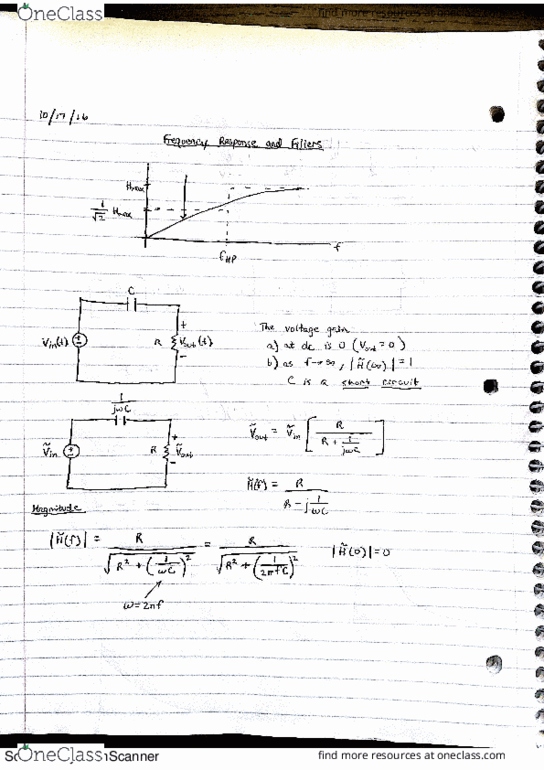 OneClass
find more resources at oneclass.com
10/17/16
Frequency Response and Filters
Hmax
1/√2 Hmax
f
fHP
C
Vin(t)
R
+
Vout(t)
-
The voltage gain
a) at dc is 0 (Vout = 0)
b) as f→∞, |H̃(∞)| = 1
C is a short circuit
1/jωC
Ṽin
R
+
Ṽout
-
Ṽout = Ṽin [R / (R + 1/jωC)]
H̃(f) = R / (R - j 1/ωC)
Magnitude
|H̃(f)| = R / √(R² + (1/ωC)²) = R / √(R² + (1/2πfC)²) |H̃(0)| = 0
ω = 2πf
OneClass
Scanner
find more resources at oneclass.com